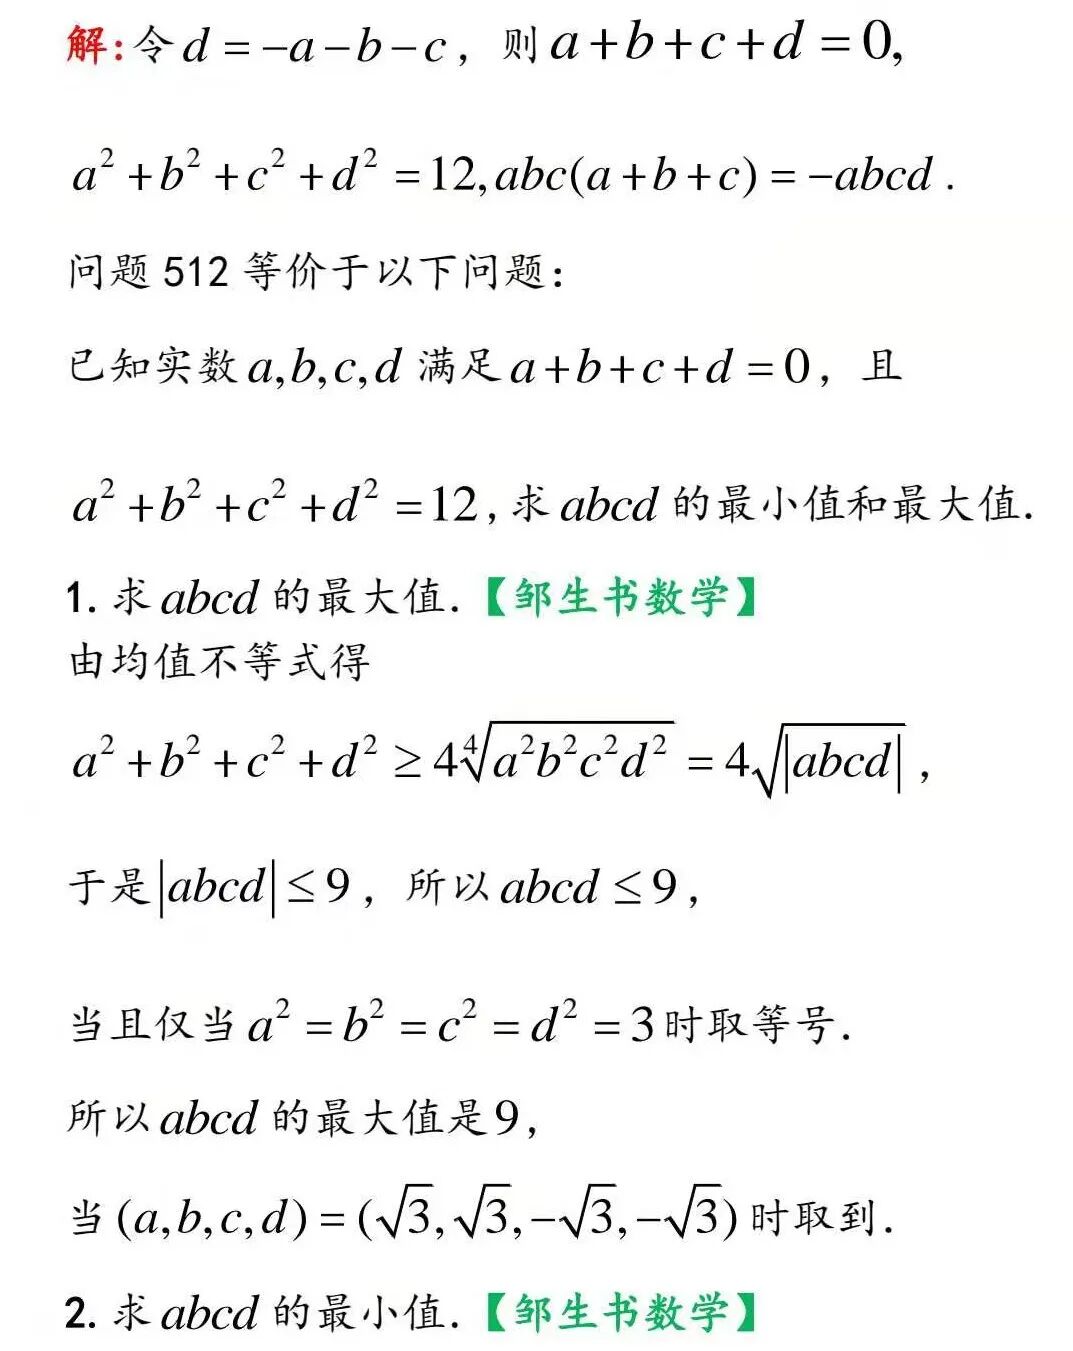 解:令d=-a-b-c，则a+b+c+d=0,
a²+b²+c²+d²=12,abc(a+b+c)=-abcd.
问题512等价于以下问题：
已知实数a,b,c,d满足a+b+c+d=0，且
a²+b²+c²+d²=12,求abcd的最小值和最大值.
1.求abcd的最大值.【邹生书数学】
由均值不等式得
a²+b²+c²+d²≥4∜(a²b²c²d²)=4√|abcd|，
于是|abcd|≤9，所以abcd≤9，
当且仅当a²=b²=c²=d²=3时取等号.
所以abcd的最大值是9，
当(a,b,c,d)=(√3,√3,-√3,-√3)时取到.
2.求abcd的最小值.【邹生书数学】